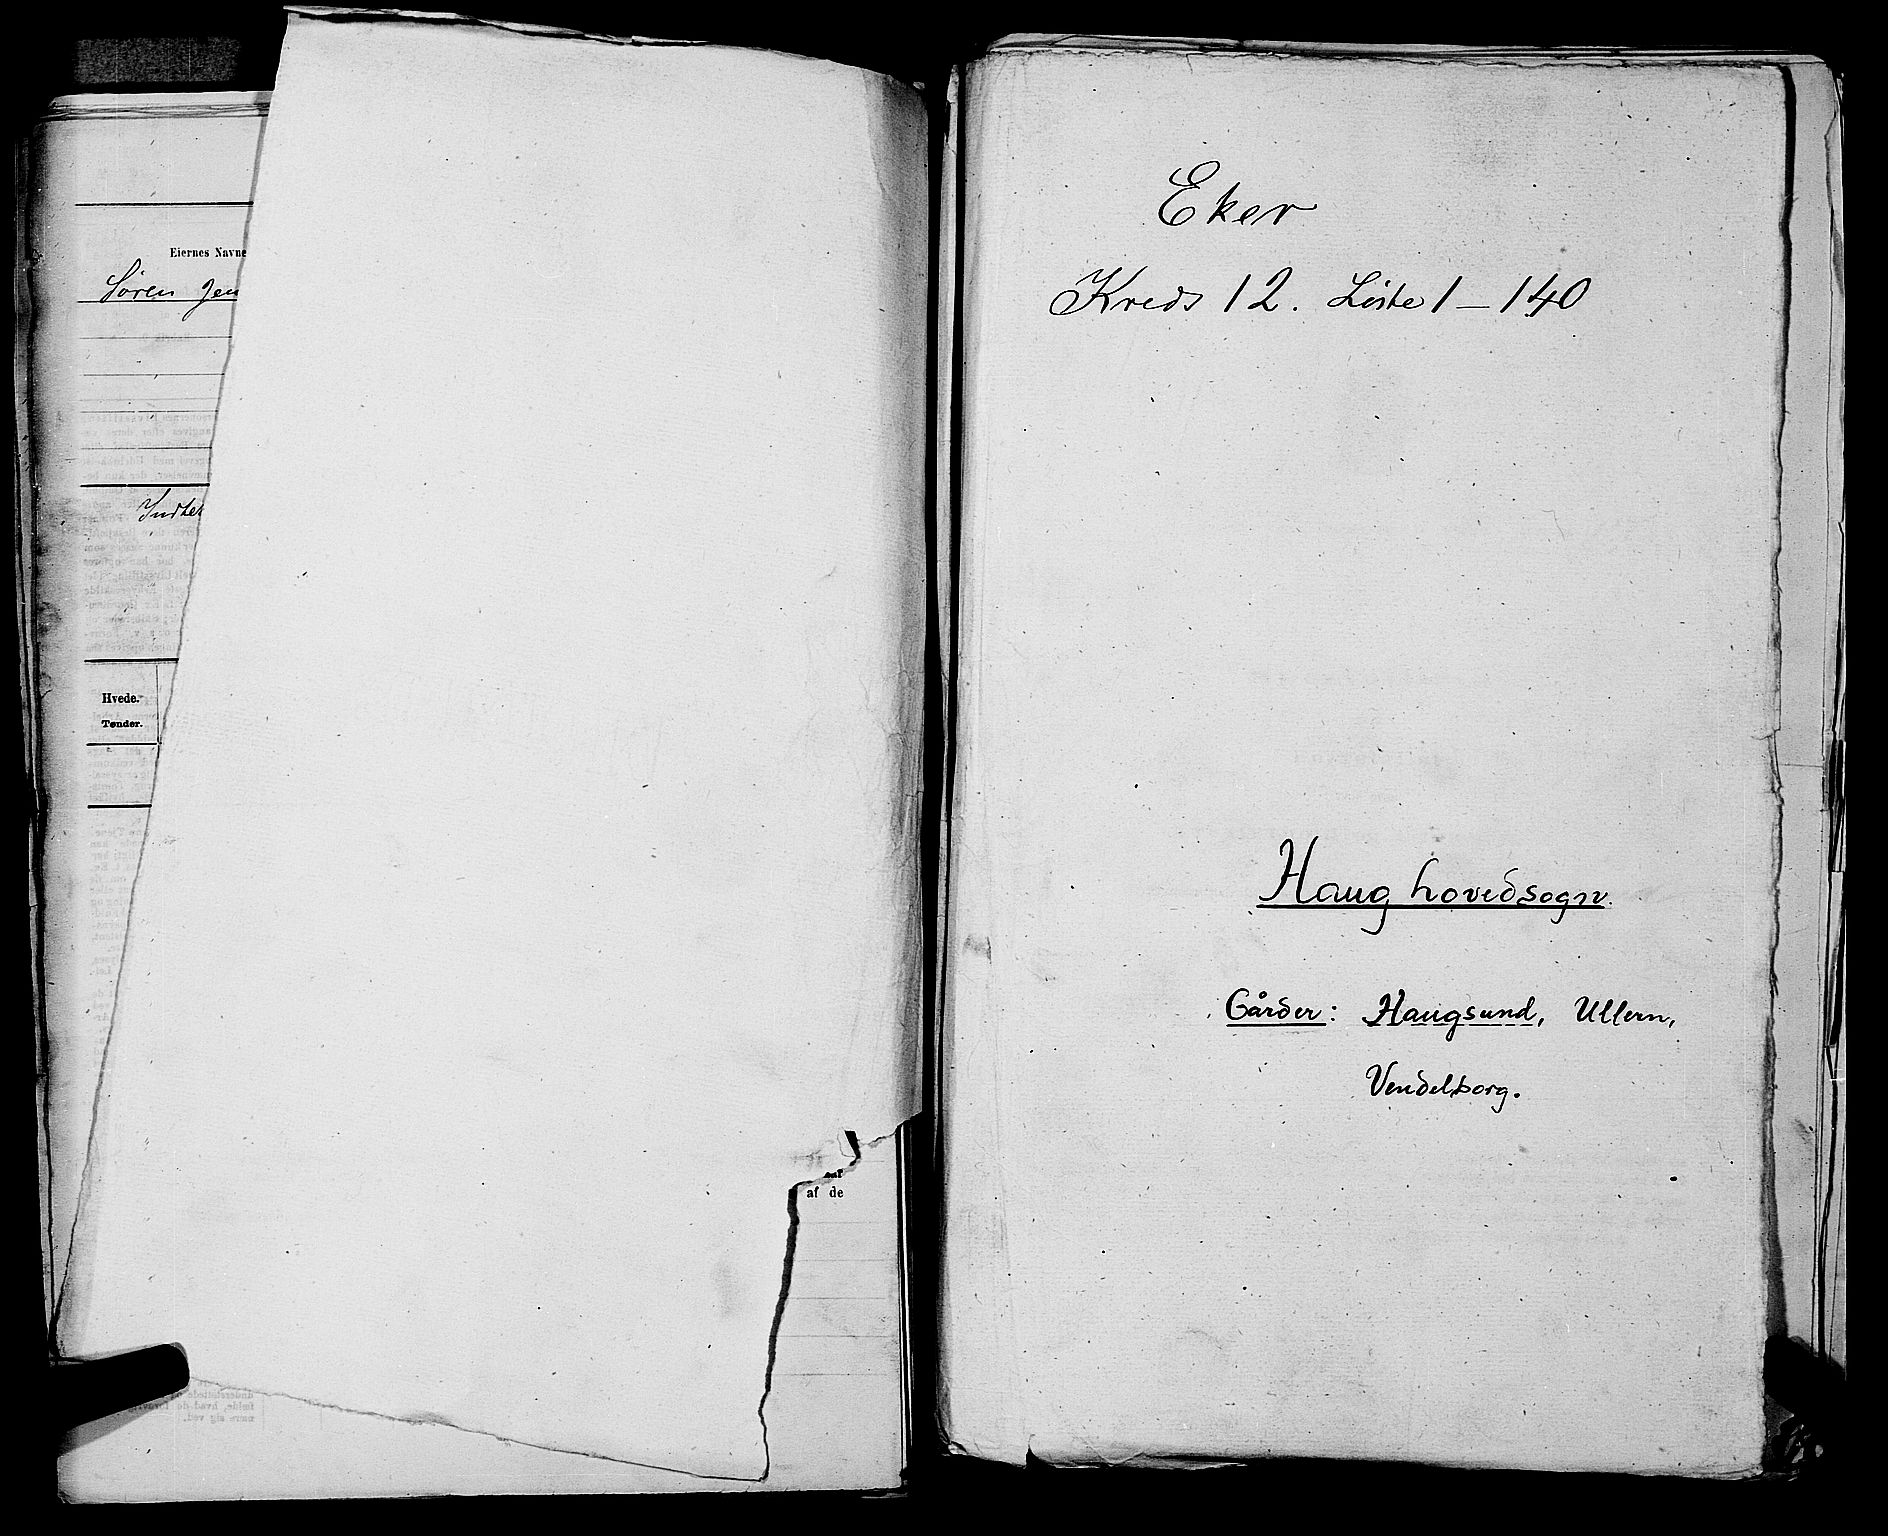 Eiernes Navne
Søren Jen
Hvede.
Tønder.
af de
Eker
Kreds 12. Liste 1 – 140
Haug hovedsogn.
Gårder: Haugsund, Ullern,
Vendelborg.